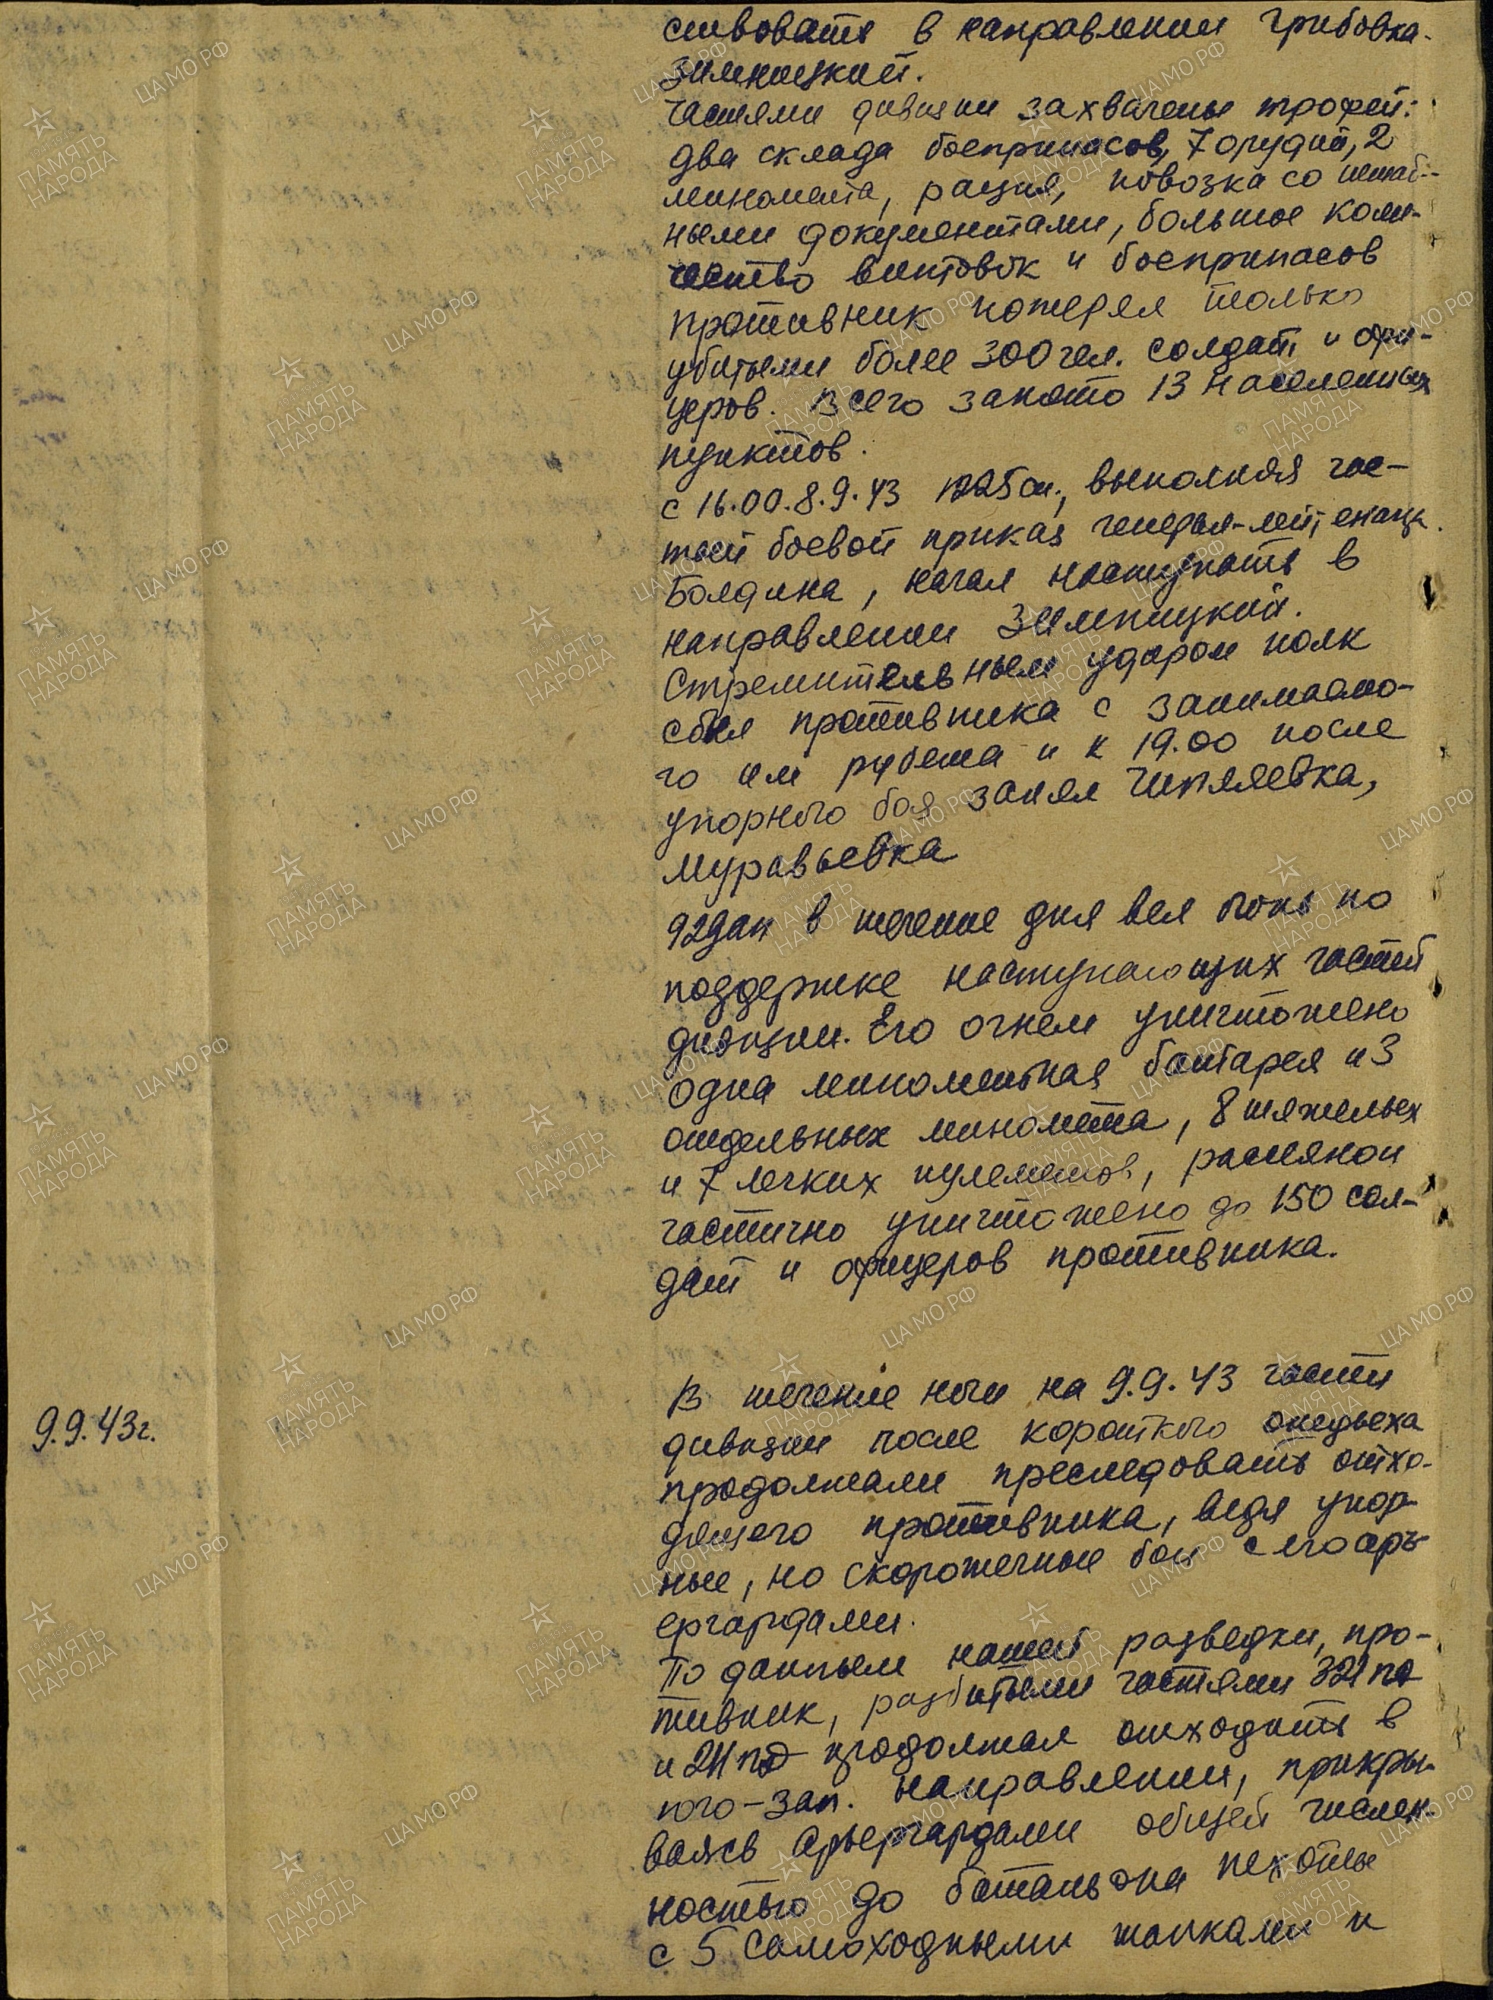 ствовать в направлении Грибовка-
Зимницкий.
Частями дивизии захвачены трофеи:
два склада боеприпасов, 7 орудий, 2
миномета, рация, повозка со штаб-
ными документами, большое коли-
чество винтовок и боеприпасов
Противник потерял только
убитыми более 300 чел. солдат и офи-
церов. Всего занято 13 населенных
пунктов.
с 16.00.8.9.43 1225 сп., выполняя час-
тый боевой приказ генерал-лейтенанта
Болдина, начал наступать в
направлении Зимницкий.
Стремительным ударом полк
сбил противника с занимаемо-
го им рубежа и к 19.00 после
упорного боя занял Чипляевка,
Муравьевка
92 дап в течение дня вел огонь по
поддержке наступающих частей
дивизии. Его огнем уничтожено
одна минометная батарея и 3
отдельных миномета, 8 тяжелых
и 7 легких пулеметов, рассеяно и
частично уничтожено до 150 сол-
дат и офицеров противника.
9.9.43г.
В течение ночи на 9.9.43 части
дивизии после короткого отдыха
продолжали преследовать отхо-
дящего противника, ведя упор-
ные, но скоротечные бои с его арь-
ергардами.
По данным нашей разведки, про-
тивник, разбитыми частями 321 пд
и 211 пд продолжал отходить в
юго-зап. направлении, прикры-
ваясь арьергардами общей числен-
ностью до батальона пехоты
с 5 самоходными танками и